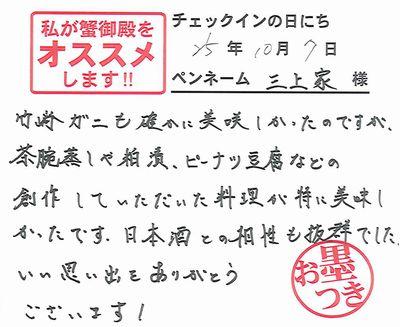 私が蟹御殿を
オススメ
します!!
チェックインの日にち
25年10月7日
ペンネーム 三上家 様
竹崎ガニも確かに美味しかったのですが、
茶腕蒸しや粕漬、ピーナツ豆腐などの
創作していただいた料理が特に美味し
かったです。日本酒との相性も抜群でした。
いい思い出をありがとう
ございます!
お墨
つき